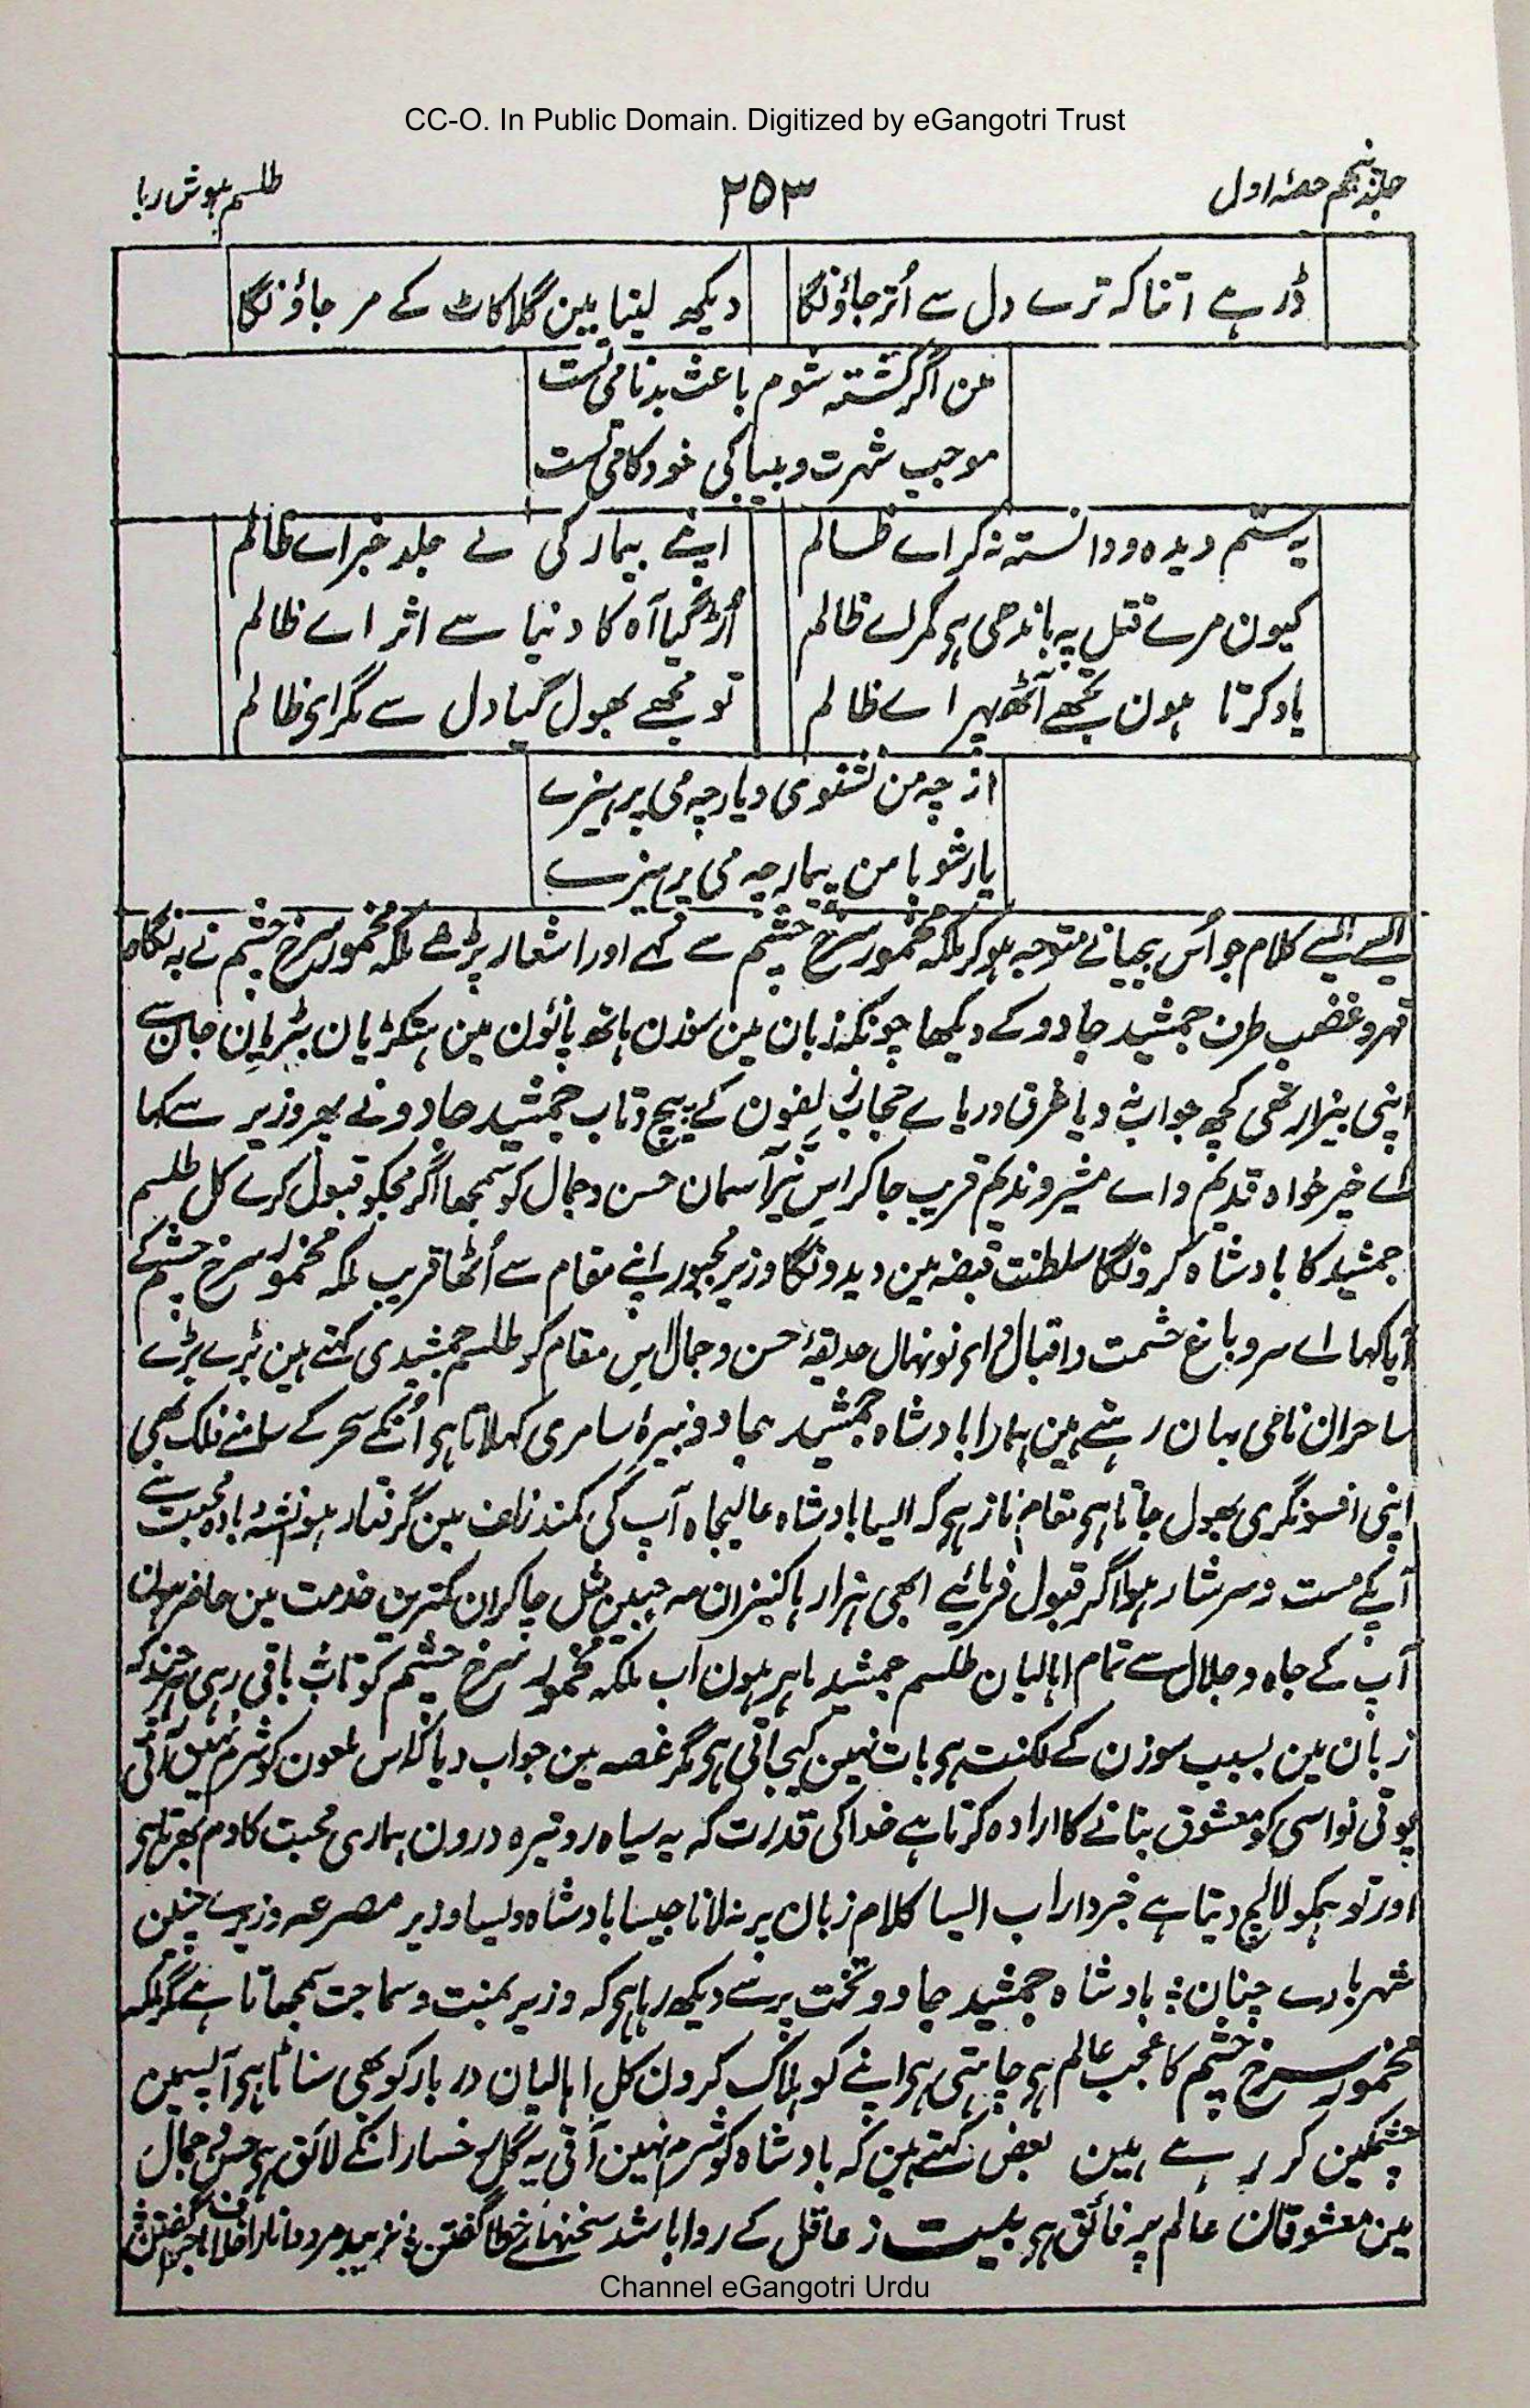 CC-O. In Public Domain. Digitized by eGangotri Trust
جلد پنجم حصۂ اول ۲۵۳ طلسم ہوش ربا
ڈر ہے اتنا کہ ترے دل سے اُتر جاؤنگا دیکھ لینا مین گلا کاٹ کے مر جاؤنگا
من اگر کشتہ شوم باعث بدنامی تست
موجب شہرت و بیباکی خودکامی تست
یہ ستم دیدہ و دانستہ نہ کر اے ظالم اپنے بیمار کی لے جلد خبر اے ظالم
کیون مرے قتل پہ باندھی ہی کمر اے ظالم اُڑ گیا آہ کا دنیا سے اثر اے ظالم
یاد کرتا ہون تجھے آٹھ پہر اے ظالم تو مجھے بھول گیا دل سے مگر ای ظالم
از چہ من نشنوی و یار چہ می پرہیزے
یار شو با من بیمار چہ می پرہیزے
ایسے ایسے کلام جو اُس بیحیا نے متوجہ ہو کر ملکہ مخمور سرخ چشم سے کہے اور اشعار پڑھے ملکہ مخمور سرخ چشم نے بہ نگاہ
قہر و غضب طرف جمشید جادو کے دیکھا چونکہ زبان مین سوزن ہاتھ پائون مین ہتکڑیان بیڑیان جان سے
اپنی بیزار تھی کچھ جواب نہ دیا غرق دریاے حجاب زلفون کے پیچ و تاب جمشید جادو نے پھر وزیر سے کہا
اے خیر خواہ قدیم و اے مشیر و ندیم قریب جا کر اس نیر آسمان حسن و جمال کو سمجھا اگر مجکو قبول کرے کل طلسم
جمشید کا بادشاہ کرونگا سلطنت قبضہ مین دیدونگا وزیر مجبور اپنے مقام سے اُٹھا قریب ملکہ مخمور سرخ چشم کے
آیا کہا اے سرو باغ حشمت و اقبال و ای نونہال حدیقۂ حسن و جمال اس مقام کو طلسم جمشیدی کہتے ہین بڑے بڑے
ساحران نامی یہان رہتے ہین ہمارا بادشاہ جمشید جادو نبیرۂ سامری کہلاتا ہی اُنکے سحر کے سامنے فلک بھی
اپنی افسونگری بھول جاتا ہی مقام ناز ہی کہ ایسا بادشاہ عالیجاہ آپ کی کمند زلف مین گرفتار ہو نشۂ بادہ محبت سے
آپکے مست و سرشار ہوا اگر قبول فرمائیے ابھی ہزار ہا کنیزان مہ جبین مثل چاکران کمترین خدمت مین حاضر ہون
آپ کے جاہ و جلال سے تمام اہالیان طلسم جمشید ماہر ہون اب ملکہ مخمور سرخ چشم کو تاب باقی رہی ہر چند کہ
زبان مین بسبب سوزن کے لکنت ہی بات نہین کیجاتی ہی مگر غصہ مین جواب دیا کہ اس ملعون کو شرم نہین آتی
پوتی نواسی کو معشوق بنانے کا ارادہ کرتا ہے خدا کی قدرت کہ یہ سیاہ رو تیرہ درون ہماری محبت کا دم بھرتا ہی
اور تو ہمکو لالچ دیتا ہے خبردار اب ایسا کلام زبان پر نہ لانا جیسا بادشاہ ویسا وزیر مصرعہ وزیرے چنین
شہریارے چنان ؛ بادشاہ جمشید جادو تخت پر سے دیکھ رہا ہی کہ وزیر بمنت و سماجت سمجھاتا ہے مگر ملکہ
مخمور سرخ چشم کا عجب عالم ہی چاہتی ہی اپنے کو ہلاک کرون کل اہالیان دربار کو بھی سناٹا ہی آپسمین
چشمکین کر رہے ہین بعض کہتے ہین کہ بادشاہ کو شرم نہین آتی یہ گل رخسار انکے لائق ہی حسن و جمال
مین معشوقان عالم پر فائق ہی بیت ز عاقل کے روا باشد سخنہاے خطا گفتن ؛ نزیبد مرد دانا را
Channel eGangotri Urdu